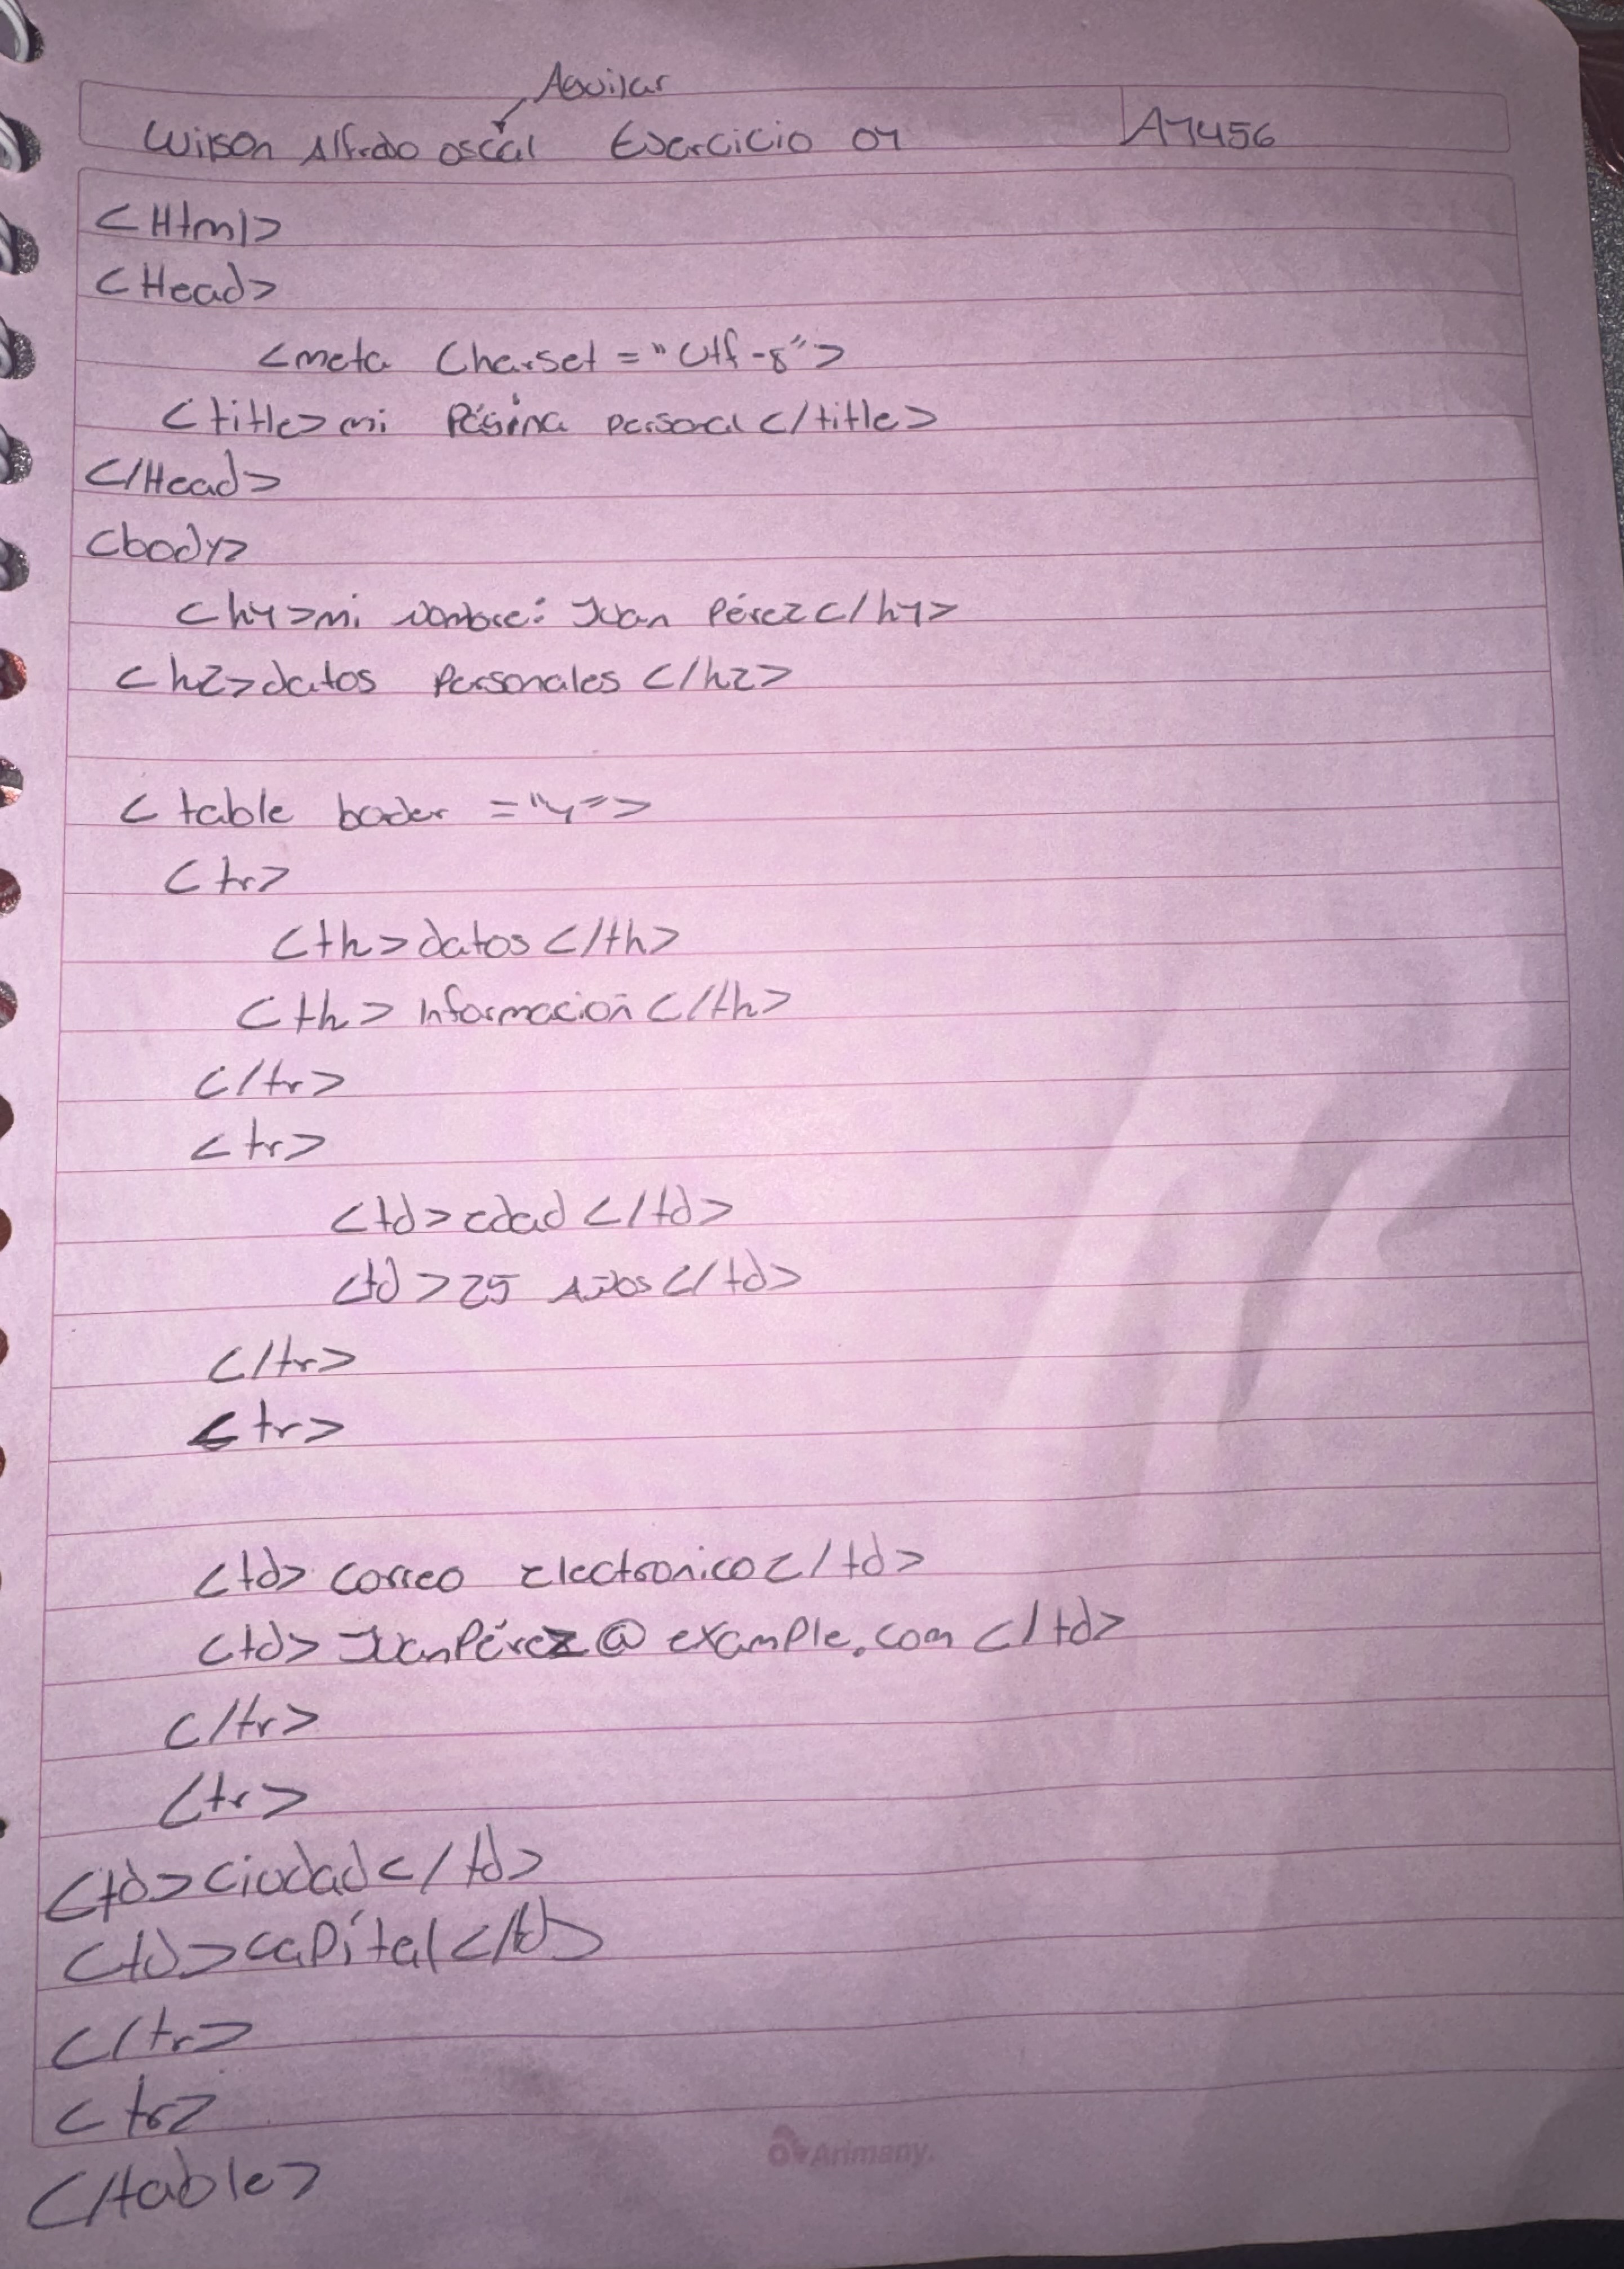 Aguilar
Wilson Alfredo oscal Exercicio 01 A1456
<Html>
<Head>
<meta Charset = "Utf-8">
<title>mi Página personal</title>
</Head>
<body>
<h1>mi Nombre: Juan Pérez</h1>
<h2>datos Personales </h2>
< table boder ="1">
<tr>
<th>datos </th>
<th> Información </th>
</tr>
<tr>
<td>edad </td>
<td>25 Años</td>
</tr>
<tr>
<td> correo Electronico</td>
<td> JuanPérez@example.com </td>
</tr>
<tr>
<td>Ciudad</td>
<td>capítal</td>
</tr>
<tr>
</table>
Arimany.